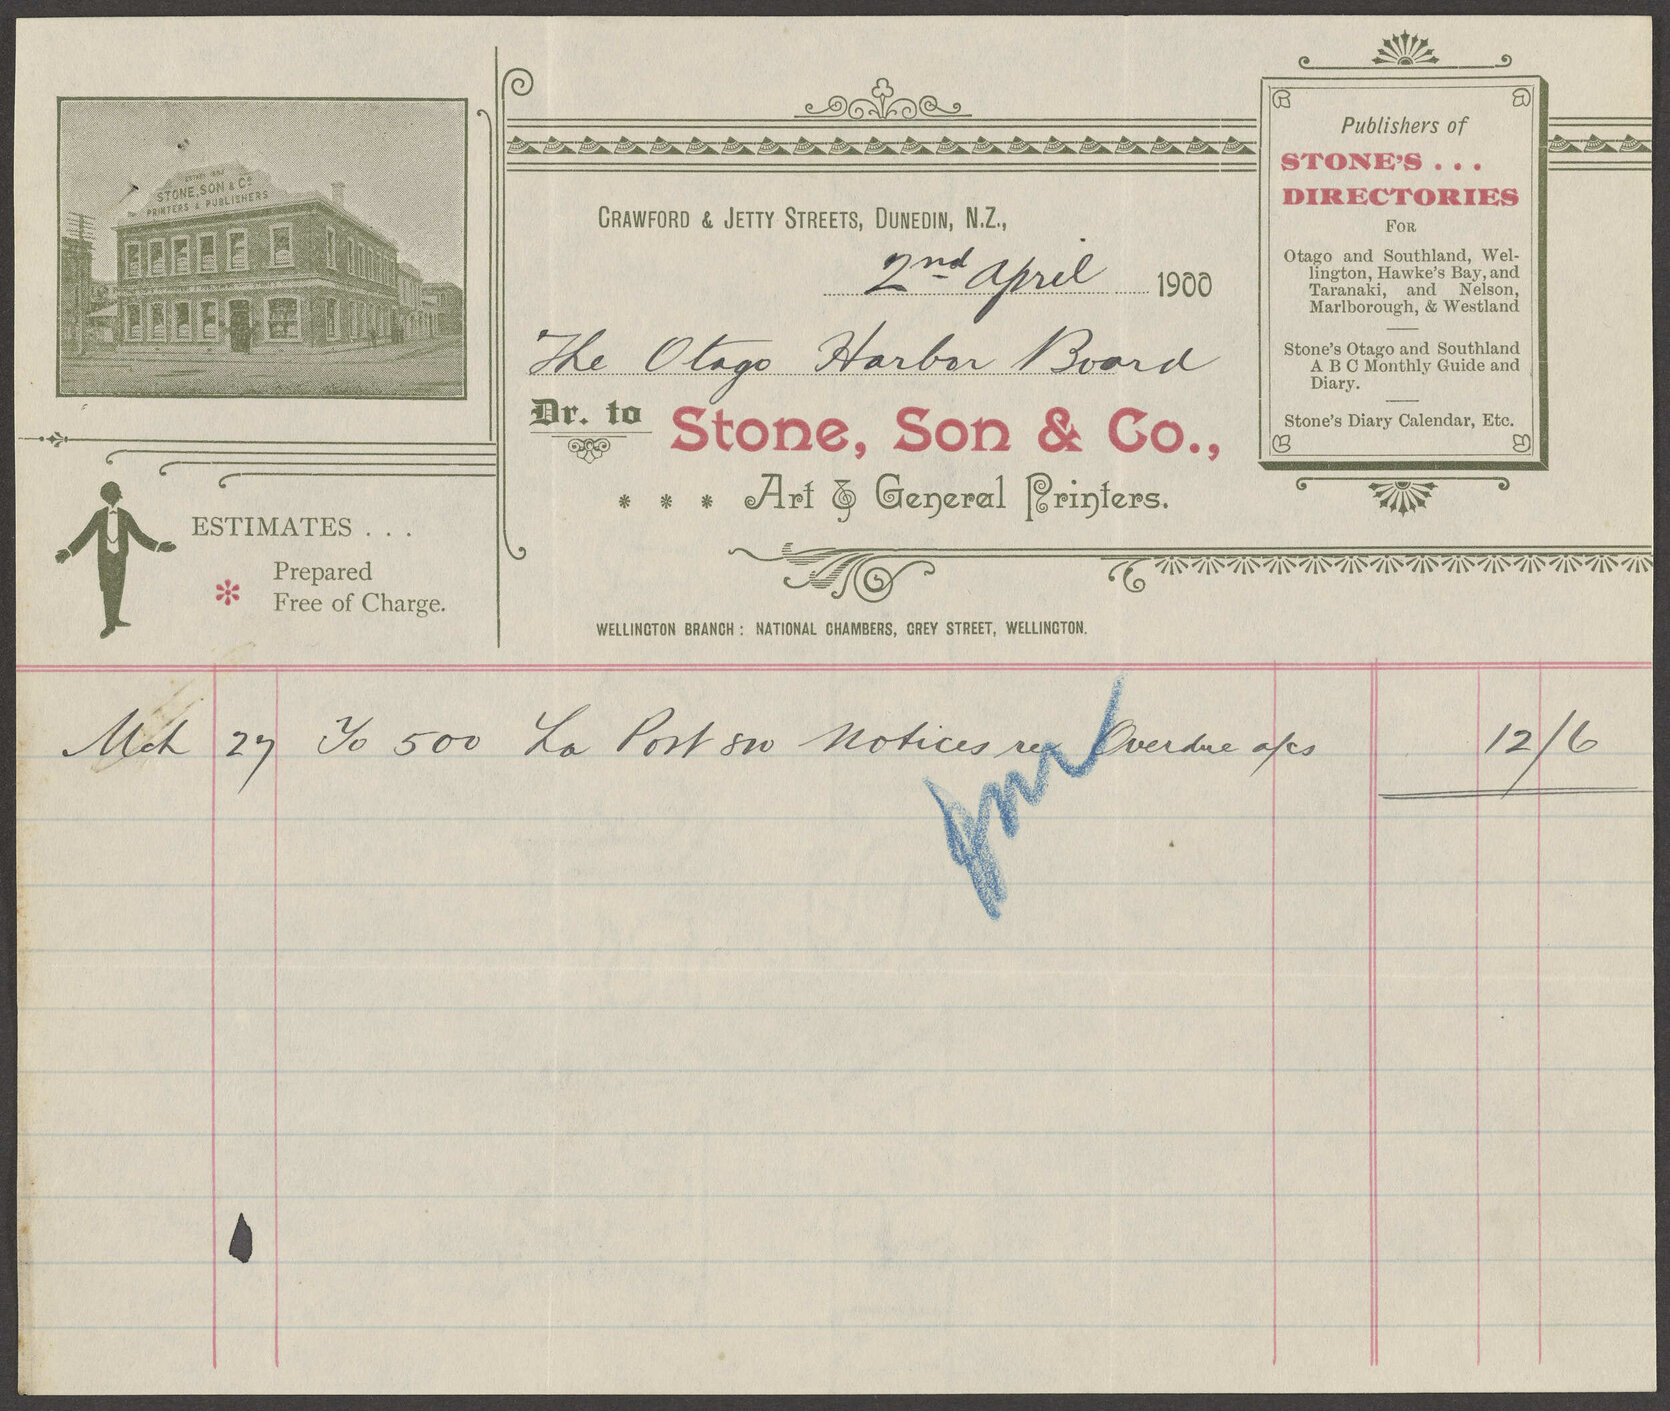 ESTAB. 1882
STONE, SON & Co
PRINTERS & PUBLISHERS
ESTIMATES . . .
Prepared
Free of Charge.
CRAWFORD & JETTY STREETS, DUNEDIN, N.Z.,
2nd April 1900
The Otago Harbor Board
Dr. to Stone, Son & Co.,
* * * Art & General Printers.
WELLINGTON BRANCH: NATIONAL CHAMBERS, GREY STREET, WELLINGTON.
Publishers of
STONE'S . . .
DIRECTORIES
FOR
Otago and Southland, Wel-
lington, Hawke's Bay, and
Taranaki, and Nelson,
Marlborough, & Westland
Stone's Otago and Southland
A B C Monthly Guide and
Diary.
Stone's Diary Calendar, Etc.
Mch 27 To 500 La Post 8vo Notices re Overdue a/cs 12/6